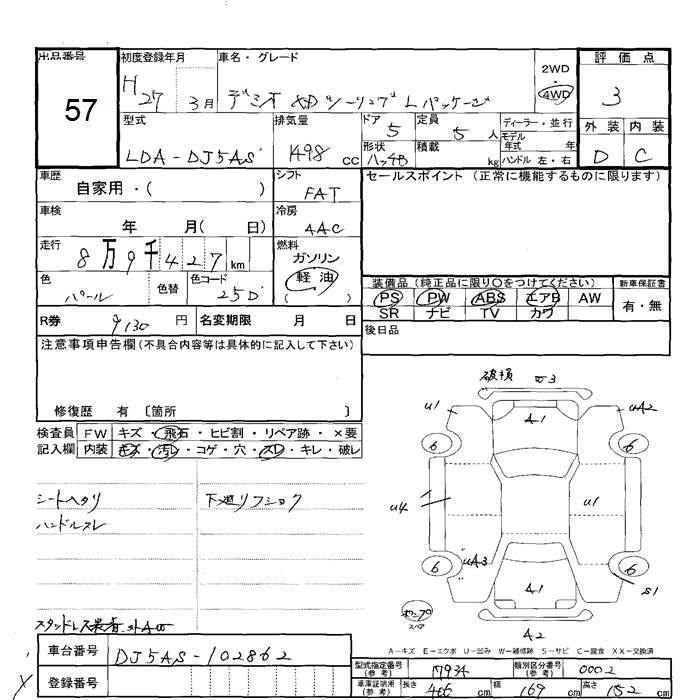 出品番号 57
初度登録年月 H 27 3月
車名・グレード デミオ XD ツーリング Lパッケージ
2WD・4WD
評価点 3
外装 D 内装 C
型式 LDA-DJ5AS
排気量 1498 cc
ドア 5
形状 ハッチB
定員 5 人
積載 kg
ディーラー・並行
モデル年式 年
ハンドル 左・右
車歴 自家用・( )
シフト FAT
セールスポイント (正常に機能するものに限ります)
車検 年 月( 日)
冷房 AAC
走行 8万9千427 km
燃料 ガソリン 軽油 ( )
色 パール 色替
色コード 25D
装備品 (純正品に限り〇をつけてください)
PS PW ABS エアB AW
SR ナビ TV カワ
新車保証書 有・無
R券 9130 円
名変期限 月 日
後日品
注意事項申告欄 (不具合内容等は具体的に記入して下さい)
修復歴 有 〔箇所 〕
検査員記入欄
FW キズ・飛石・ヒビ割・リペア跡・×要
内装 キズ・汚レ・コゲ・穴・スレ・キレ・破レ
シートヘタリ
ハンドルスレ
下廻リフショク
破損
U1
A1
UA2
6
6
U4
U1
UA3
6
6
A1
S1
A2
A-キズ E-エクボ U-凹み W-補修跡 S-サビ C-腐食 XX-交換済
車台番号 DJ5AS-102862
登録番号
型式指定番号(参考) 17934
類別区分番号(参考) 0002
車庫証明用(参考) 長さ 406 cm 幅 169 cm 高さ 152 cm